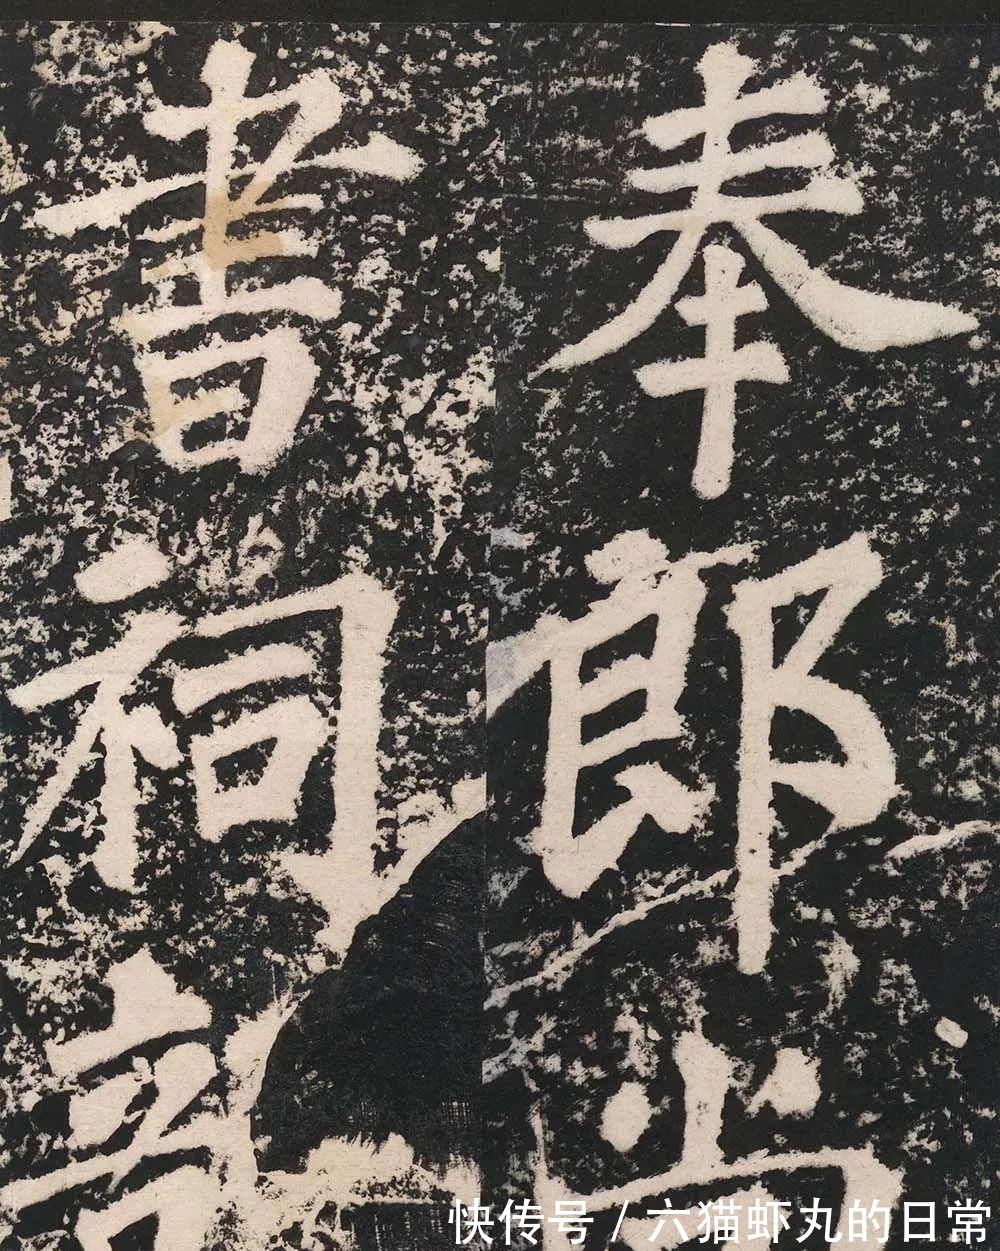 奉郎尚
書祠部
快传号 / 六猫虾丸的日常